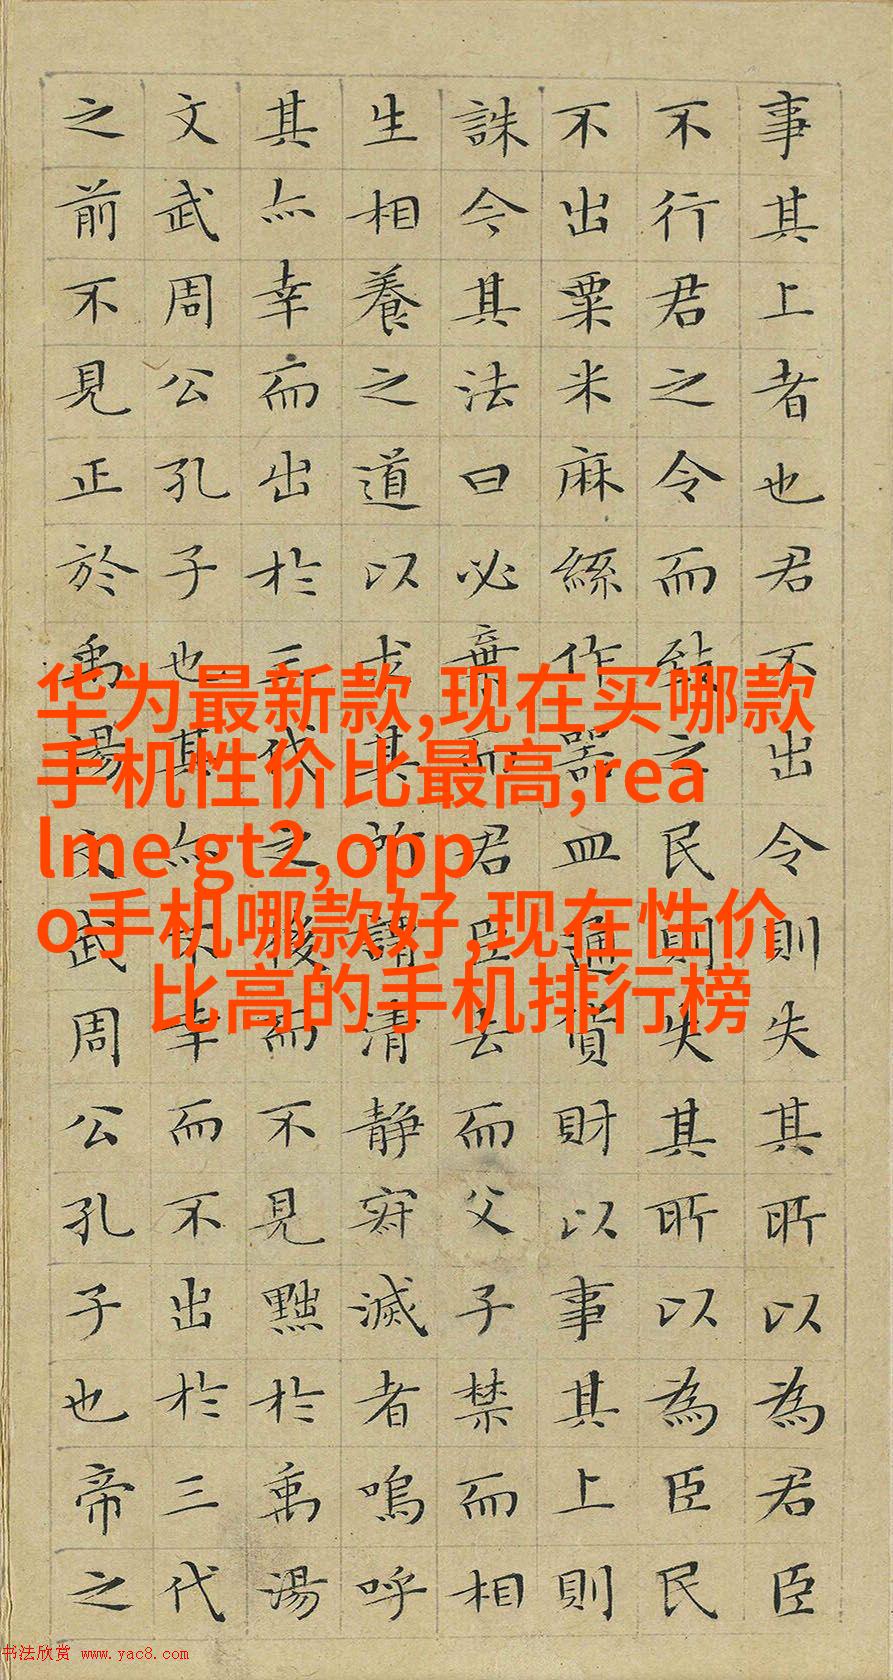 事其上者也君不出令則失其所以為君臣
不行君之令而致之民則失其所以為臣民
不出粟米麻絲作器皿通貨財以事其上則
誅今其法曰必棄而君臣去而父子禁而相
生相養之道以求其所謂清静寂滅者嗚呼
其亦幸而出於三代之後而不見黜於禹湯
文武周公孔子也其亦不幸而不出於三代
之前不見正於禹湯文武周公孔子也帝之
华为最新款,现在买哪款
手机性价比最高,rea
lme gt2,opp
o手机哪款好,现在性价
比高的手机排行榜
书法欣赏 www.yac8.com